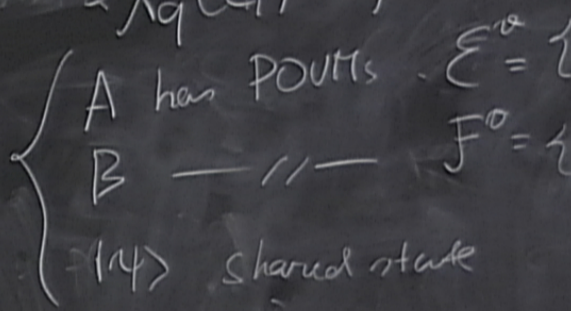 A has POVMs. Ɛᵛ = {
B —〃— Fᵛ = {
|ψ> shared state